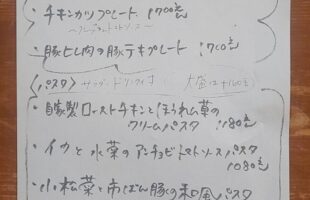 ・チキンカツプレート 1700えん
・豚ヒレ肉の豚テキプレート 1700えん
〈パスタ〉サラダ・ドリンク付 大盛は+100えん
・自家製ローストチキンとほうれん草の
クリームパスタ 1080えん
・イカと水菜のアンチョビトマトソースパスタ
1080えん
・小松菜と和風パスタ